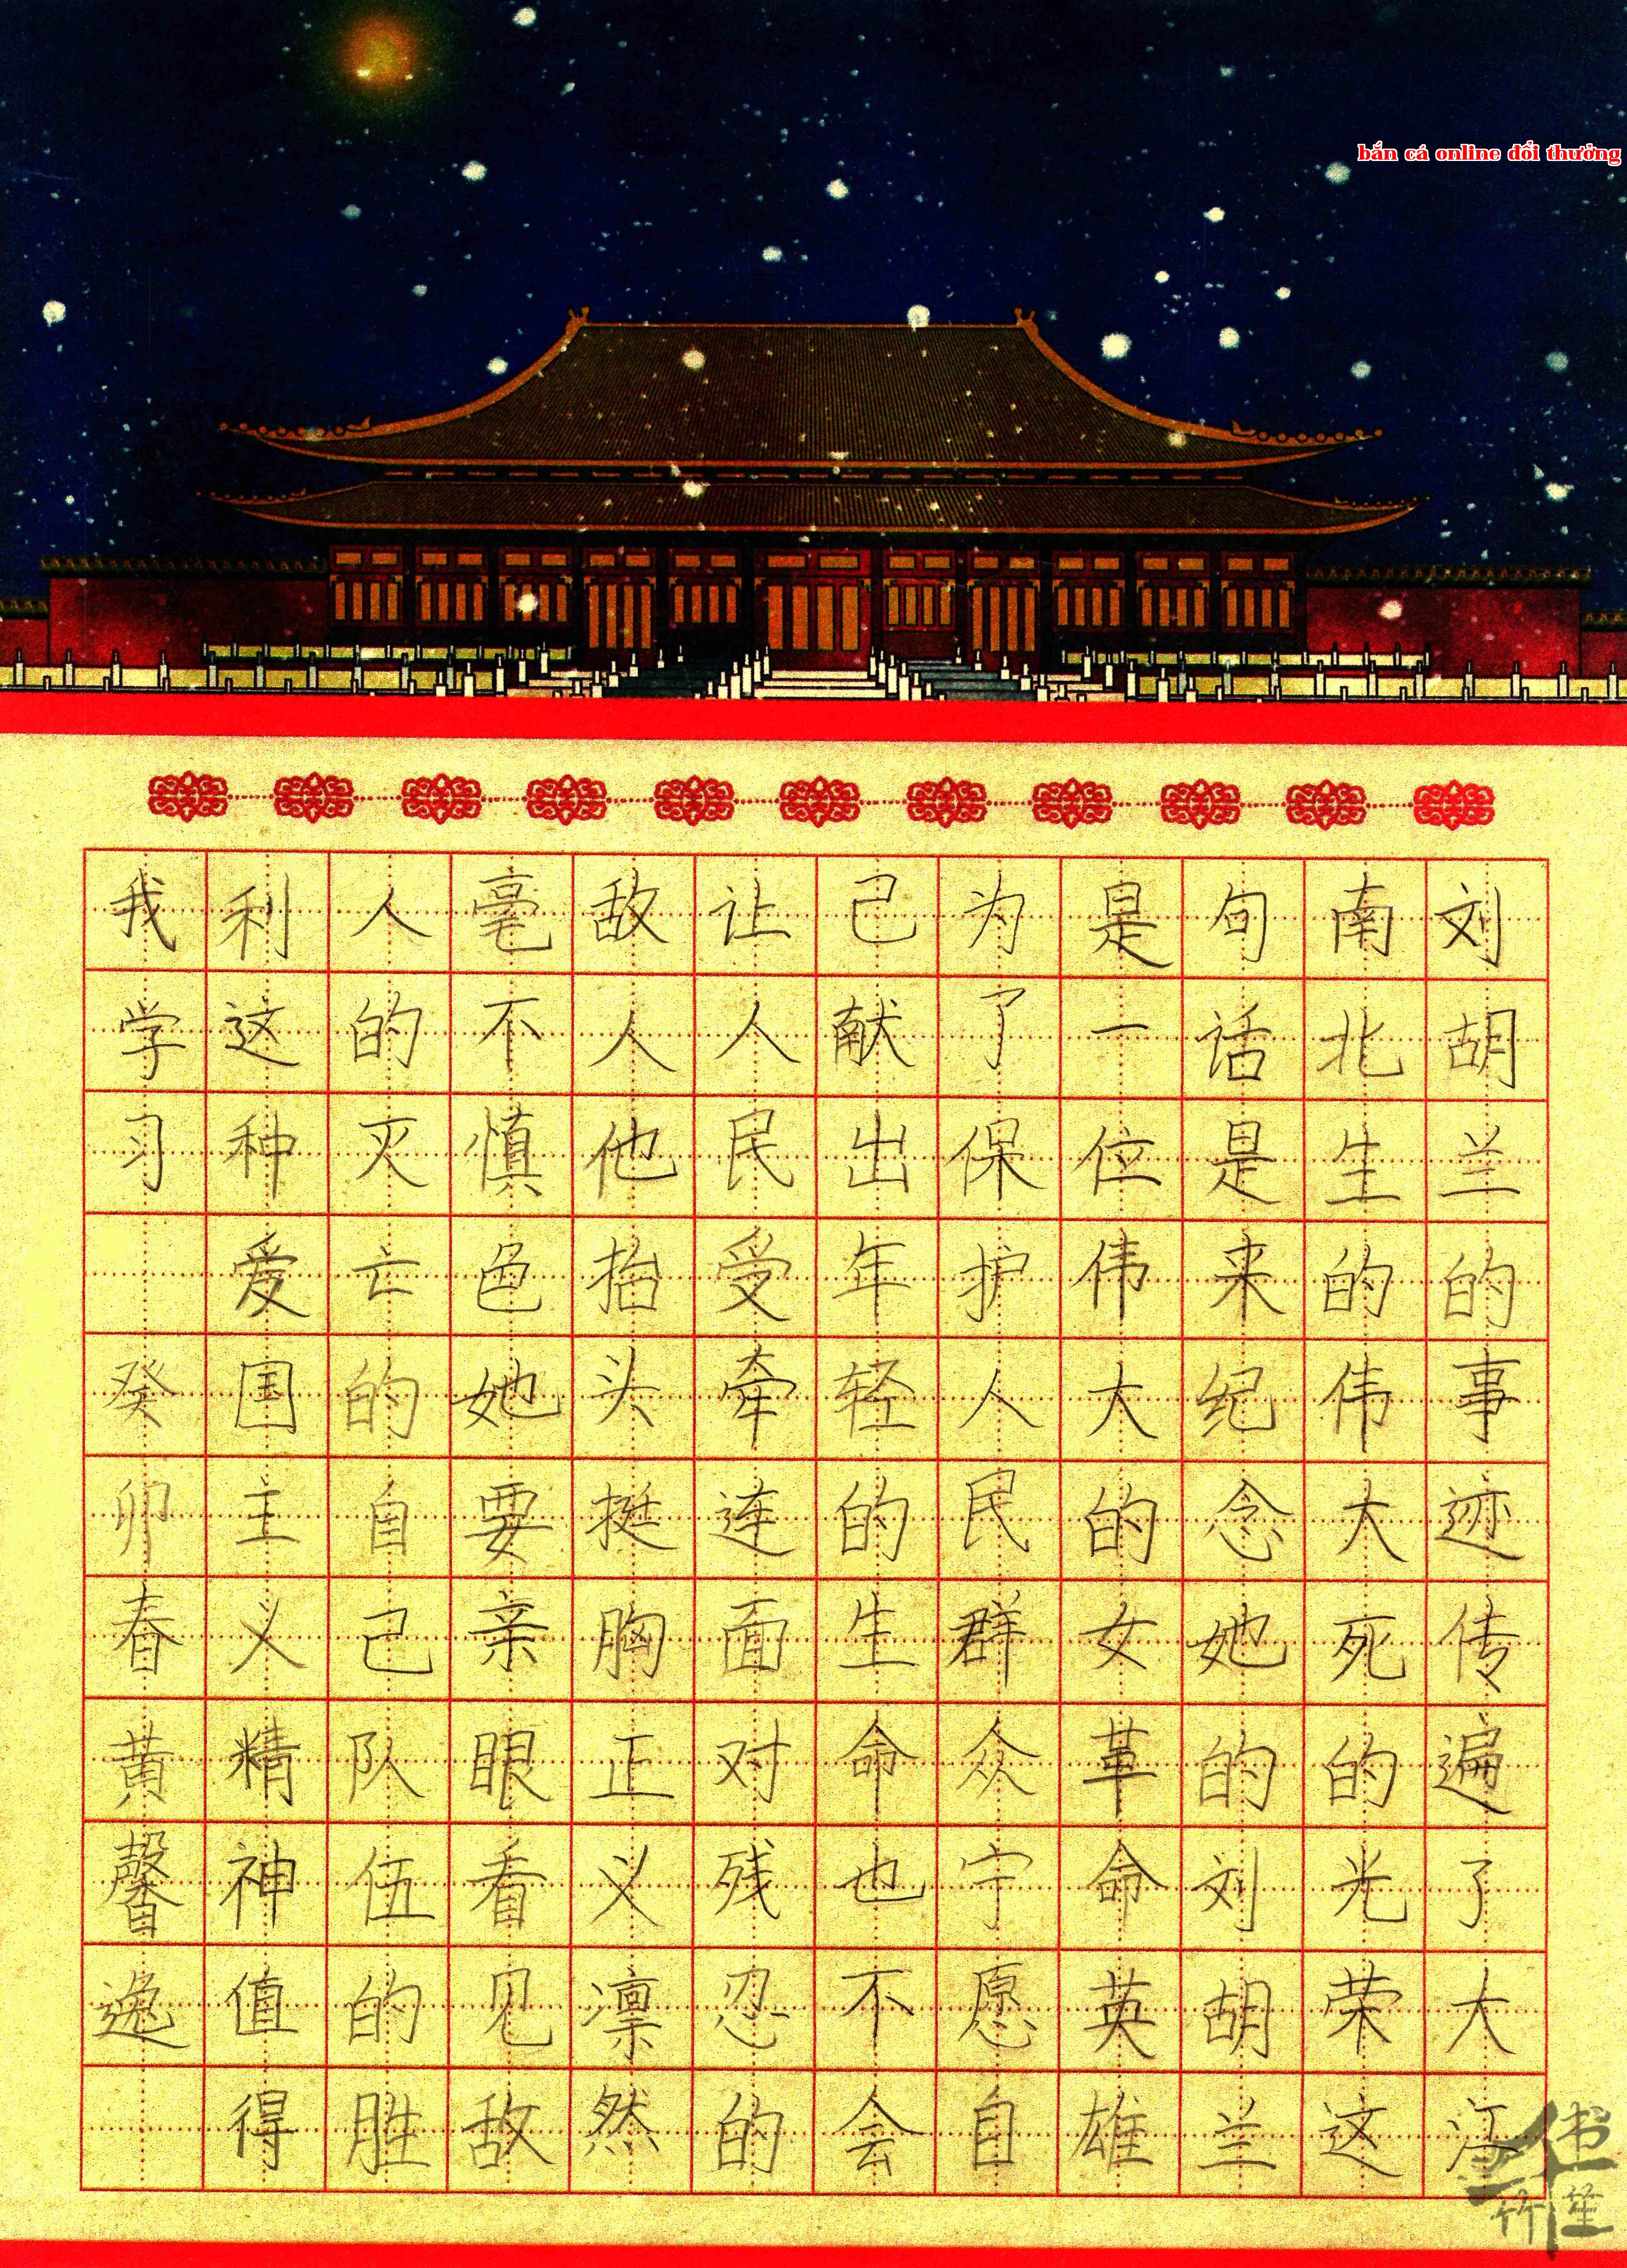 bắn cá online đổi thưởng
刘胡兰的事迹传遍了大江
南北生的伟大死的光荣这
句话是来纪念她的刘胡兰
是一位伟大的女革命英雄
为了保护人民群众宁愿自
己献出年轻的生命也不会
让人民受牵连面对残忍的
敌人他抬头挺胸正义凛然
毫不慎色她要亲眼看见敌
人的灭亡的自己队伍的胜
利这种爱国主义精神值得
我学习 癸卯春黄馨逸